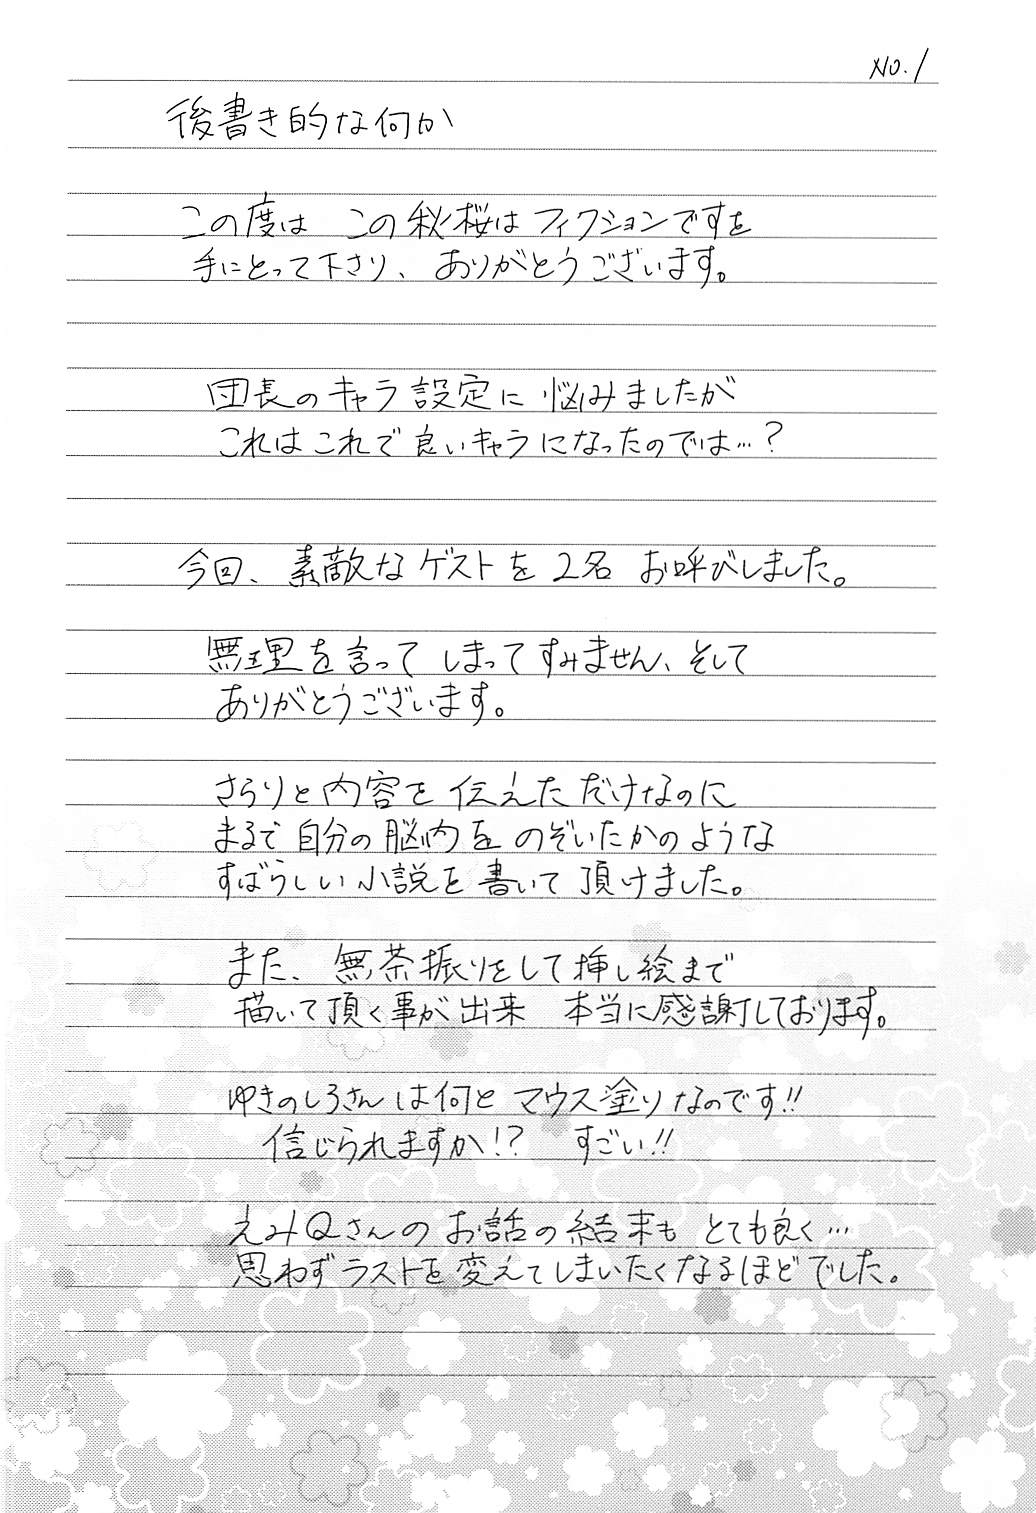 No.1
後書き的な何か
この度は この秋桜はフィクションですを
手にとって下さり、ありがとうございます。
団長のキャラ設定に悩みましたが
これはこれで良いキャラになったのでは…?
今回、素敵なゲストを2名 お呼びしました。
無理を言ってしまってすみません、そして
ありがとうございます。
さらりと内容を伝えただけなのに
まるで自分の脳内をのぞいたかのような
すばらしい小説を書いて頂けました。
また、無茶振りをして挿し絵まで
描いて頂く事が出来 本当に感謝しております。
ゆきのしろさんは何とマウス塗りなのです!!
信じられますか!? すごい!!
えみQさんのお話の結末もとても良く…
思わずラストを変えてしまいたくなるほどでした。